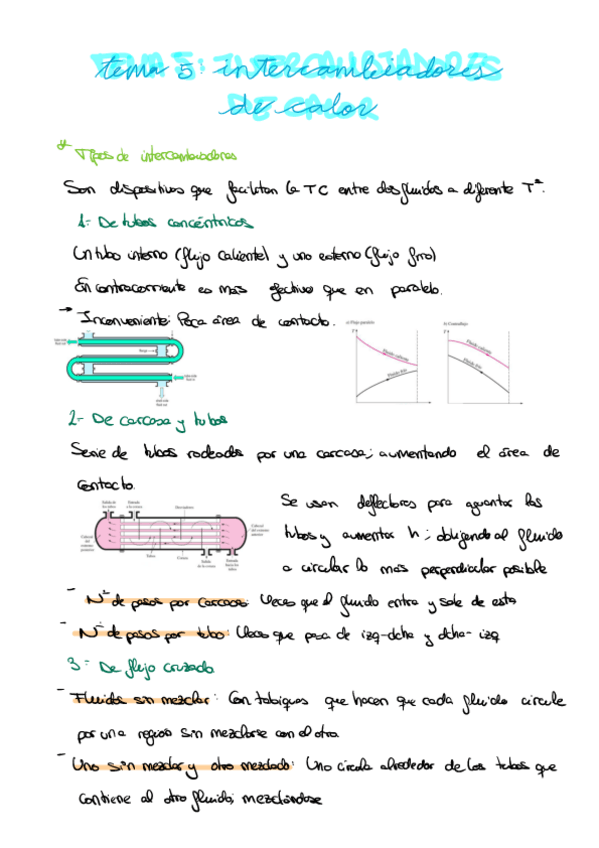 tema 5: intercambiadores
de calor
* Tipos de intercambiadores
Son dispositivos que facilitan la TC entre dos fluidos a diferente Tª.
1- De tubos concéntricos
Un tubo interno (flujo caliente) y uno externo (flujo frío)
En contracorriente es más efectivo que en paralelo.
→ Inconveniente: Poca área de contacto.
a) Flujo paralelo
b) Contraflujo
T
T
Fluido caliente
Fluido frío
Fluido caliente
Fluido frío
2- De carcasa y tubos
Serie de tubos rodeados por una carcasa; aumentando el área de
contacto.
Salida de los tubos
Entrada a la coraza
Desviadores
Cabezal del extremo posterior
Cabezal del extremo anterior
Tubos
Coraza
Salida de la coraza
Entrada hacia los tubos
Se usan deflectores para aguantar los
tubos y aumentar h; obligando al fluido
a circular lo más perpendicular posible
- Nº de pasos por carcasa: Veces que el fluido entra y sale de esta
- Nº de pasos por tubo: Veces que pasa de izq-dcha y dcha-izq
3- De flujo cruzado
- Fluidos sin mezclar: Con tabiques que hacen que cada fluido circule
por una región sin mezclarse con el otro.
- Uno sin mezclar y otro mezclado: Uno circula alrededor de los tubos que
contiene al otro fluido; mezclándose